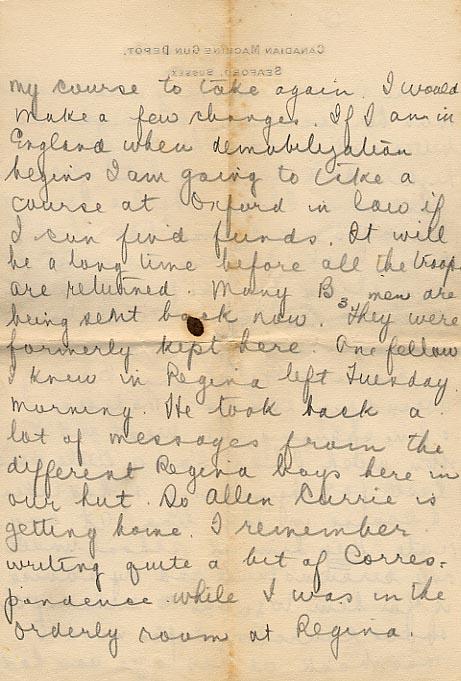 CANADIAN MACHINE GUN DEPOT,
SEAFORD, SUSSEX,
my course to take again. I would
make a few changes. If I am in
England when demobilization
begins I am going to take a
course at Oxford in law if
I can find funds. It will
be a long time before all the troops
are returned. Many B3 men are
being sent back now. They were
formerly kept here. One fellow
I knew in Regina left Tuesday
morning. He took back a
lot of messages from the
different Regina boys here in
our hut. So Allen Currie is
getting home. I remember
writing quite a bit of Corres-
pondence while I was in the
orderly room at Regina.